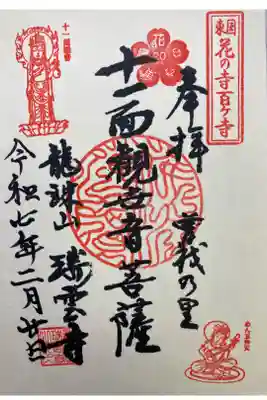 東国
花の寺百ヶ寺
奉拝
曽我の里
花の寺
十一面観世音菩薩
龍珠山 瑞雲寺
令和七年二月廿日
十一面観音